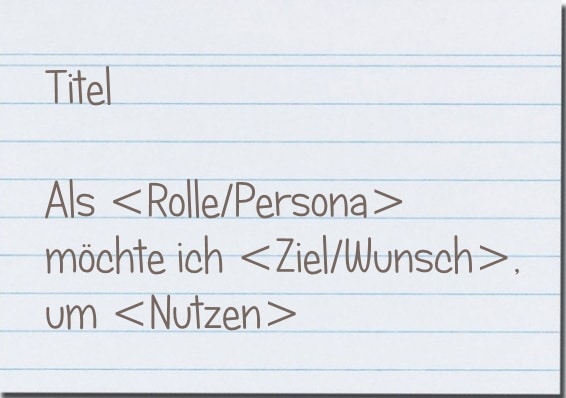 Titel
Als <Rolle/Persona>
möchte ich <Ziel/Wunsch>,
um <Nutzen>